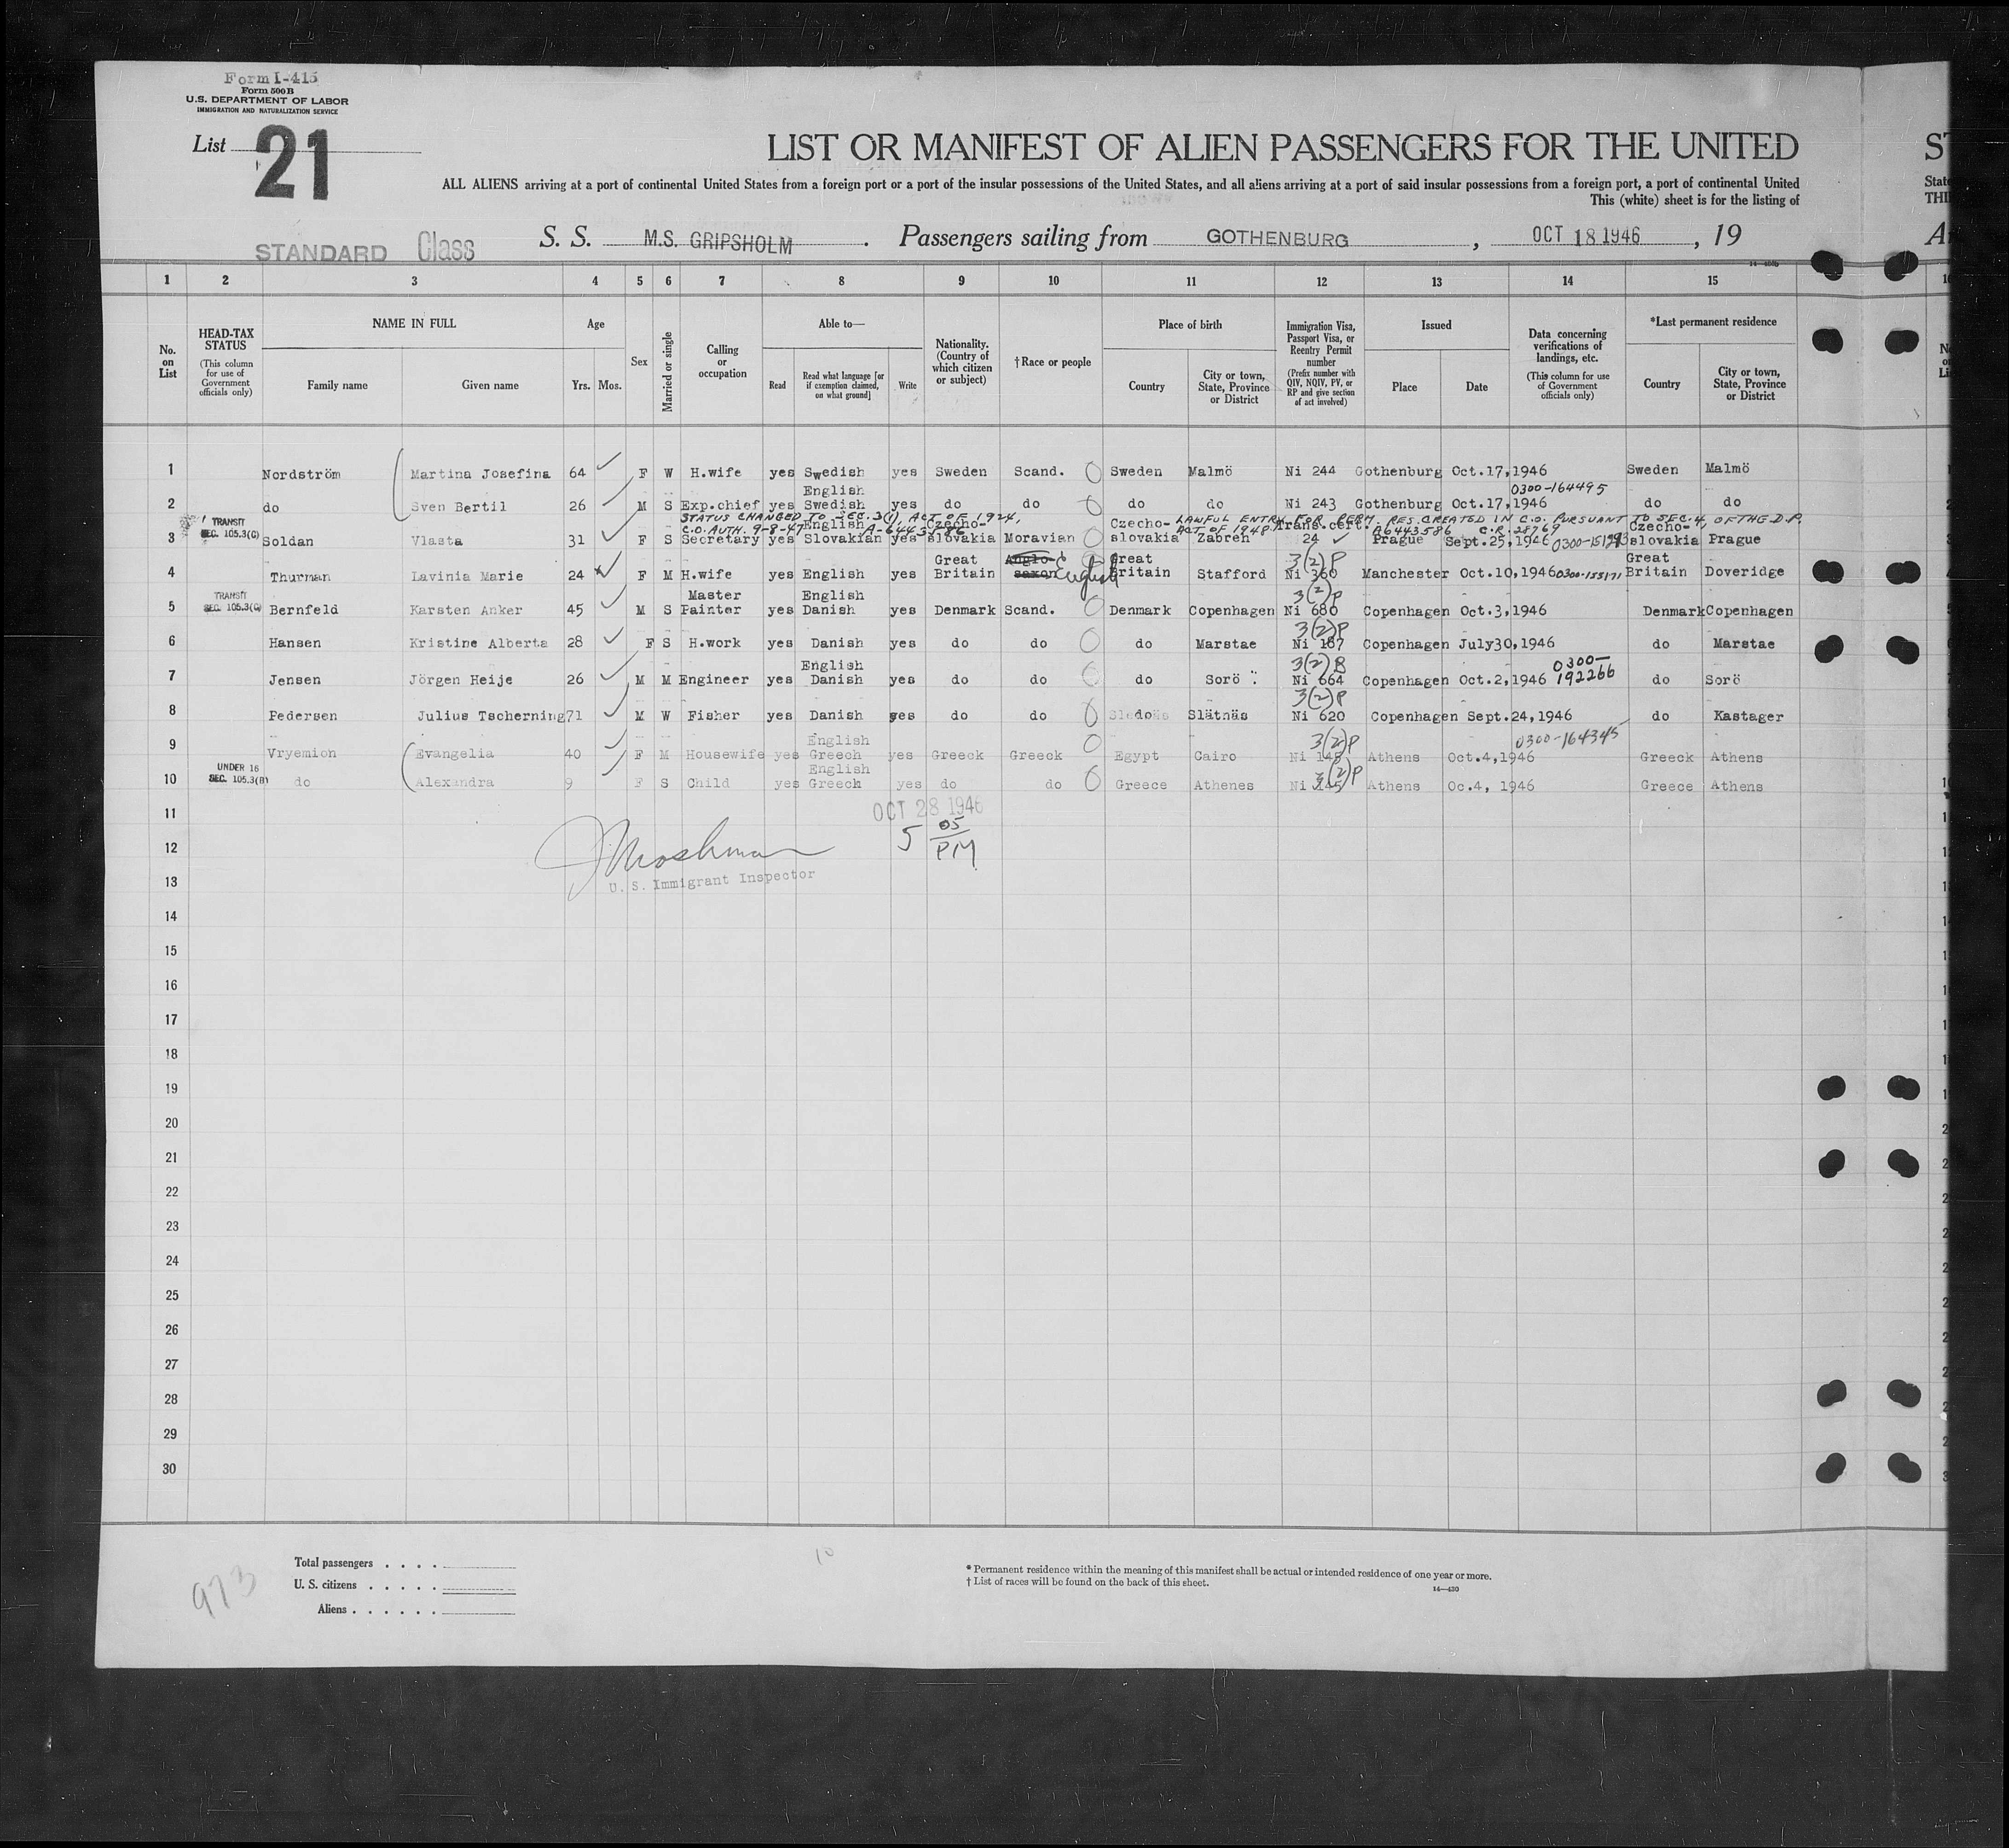 Form I-415
Form 500 B
U.S. DEPARTMENT OF LABOR
IMMIGRATION AND NATURALIZATION SERVICE
List 21
LIST OR MANIFEST OF ALIEN PASSENGERS FOR THE UNITED
ST
ALL ALIENS arriving at a port of continental United States from a foreign port or a port of the insular possessions of the United States, and all aliens arriving at a port of said insular possessions from a foreign port, a port of continental United
State
This (white) sheet is for the listing of
THI
STANDARD Class S. S. M.S. GRIPSHOLM . Passengers sailing from GOTHENBURG , OCT 18 1946 , 19
1 2 3 4 5 6 7 8 9 10 11 12 13 14 15
No. on List
HEAD-TAX STATUS (This column for use of Government officials only)
NAME IN FULL Family name Given name
Age Yrs. Mos.
Sex
Married or single
Calling or occupation
Able to— Read Read what language [or if exemption claimed, on what ground] Write
Nationality. (Country of which citizen or subject)
†Race or people
Place of birth Country City or town, State, Province or District
Immigration Visa, Passport Visa, or Reentry Permit number (Prefix number with QIV, NQIV, PV, or RP and give section of act involved)
Issued Place Date
Data concerning verifications of landings, etc. (This column for use of Government officials only)
*Last permanent residence Country City or town, State, Province or District
1 Nordström Martina Josefina 64 F W H.wife yes Swedish yes Sweden Scand. Sweden Malmö Ni 244 Gothenburg Oct.17,1946 Sweden Malmö
English 0300-164495
2 do Sven Bertil 26 M S Exp.chief yes Swedish yes do do do do Ni 243 Gothenburg Oct.17,1946 do do
STATUS CHANGED TO SEC. 3(1) ACT OF 1924, LAWFUL ENTRY FOR PERM. RES. CREATED IN C.O. PURSUANT TO SEC. 4, OF THE D.P.
TRANSIT C.O. AUTH. 9-8-47 English A-6443586 Czecho- Czecho- ACT OF 1948 Trans.cert. A6443586 C.R. 28769 Czecho-
SEC. 105.3(C)
3 Soldan Vlasta 31 F S Secretary yes Slovakian yes slovakia Moravian slovakia Zabreh 24 Prague Sept.25,1946 0300-151293 slovakia Prague
Great Anglo- Great 3(2)P Great
4 Thurman Lavinia Marie 24 F M H.wife yes English yes Britain saxon English Britain Stafford Ni 360 Manchester Oct.10,1946 0300-155171 Britain Doveridge
TRANSIT Master English 3(2)P
SEC. 105.3(C)
5 Bernfeld Karsten Anker 45 M S Painter yes Danish yes Denmark Scand. Denmark Copenhagen Ni 680 Copenhagen Oct.3,1946 Denmark Copenhagen
3(2)P
6 Hansen Kristine Alberta 28 F S H.work yes Danish yes do do do Marstae Ni 187 Copenhagen July30,1946 do Marstae
English 3(2)B 0300-
7 Jensen Jörgen Heije 26 M M Engineer yes Danish yes do do do Sorö Ni 664 Copenhagen Oct.2,1946 192266 do Sorö
3(2)P
8 Pedersen Julius Tscherning 71 M W Fisher yes Danish yes do do do Slätnäs Ni 620 Copenhagen Sept.24,1946 do Kastager
English 3(2)P 0300-164345
9 Vryemion Evangelia 40 F M Housewife yes Greech yes Greeck Greeck Egypt Cairo Ni 145 Athens Oct.4,1946 Greeck Athens
UNDER 16 English 3(2)P
SEC. 105.3(B)
10 do Alexandra 9 F S Child yes Greeck yes do do Greece Athenes Ni 145 Athens Oc.4, 1946 Greece Athens
11 OCT 28 1946
12 5 05 PM
U. S. Immigrant Inspector
13
14
15
16
17
18
19
20
21
22
23
24
25
26
27
28
29
30
973
10
Total passengers . . . .
U. S. citizens . . . . .
Aliens . . . . . .
* Permanent residence within the meaning of this manifest shall be actual or intended residence of one year or more.
† List of races will be found on the back of this sheet.
14—430